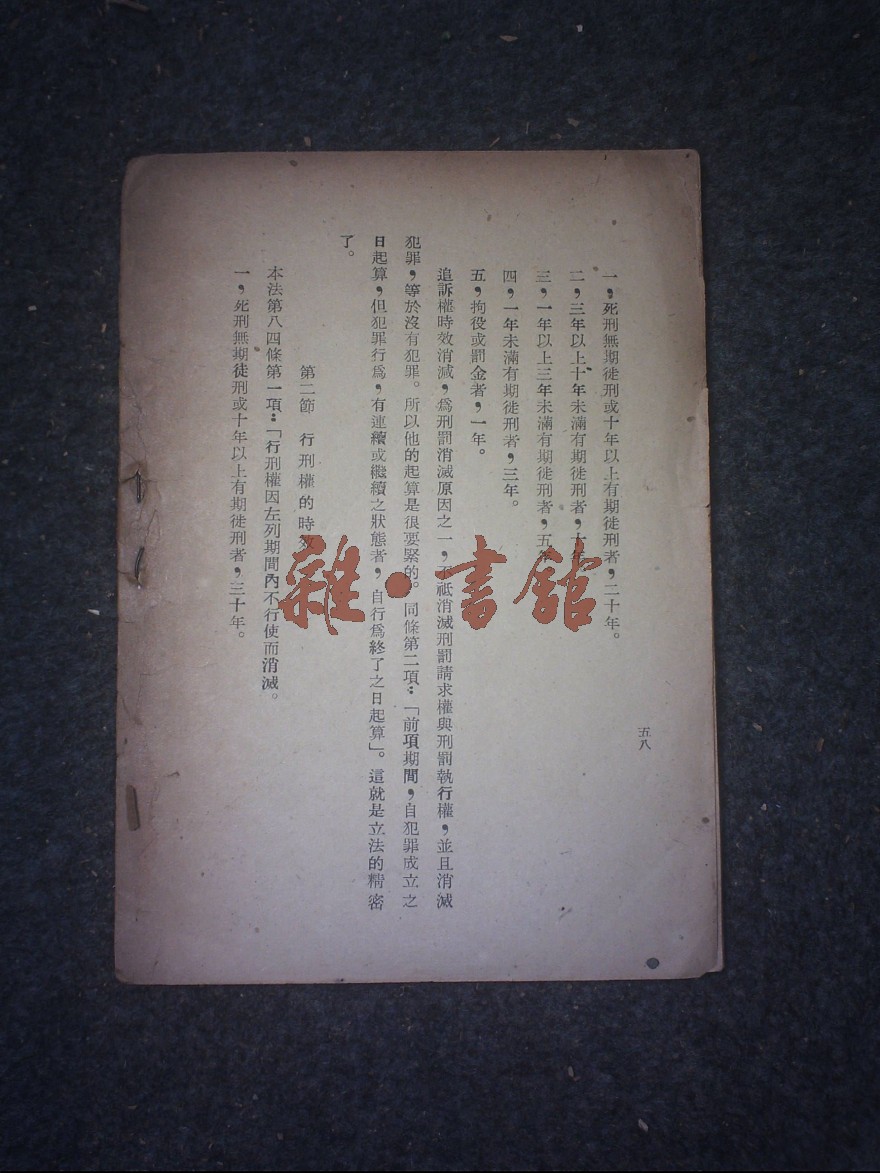 一，死刑無期徒刑或十年以上有期徒刑者，二十年。
二，三年以上十年未滿有期徒刑者，十年
三，一年以上三年未滿有期徒刑者，五年
四，一年未滿有期徒刑者，三年。
五，拘役或罰金者，一年。
追訴權時效消滅，爲刑罰消滅原因之一，不祗消滅刑罰請求權與刑罰執行權，並且消滅
犯罪，等於沒有犯罪。所以他的起算是很要緊的。同條第二項：「前項期間，自犯罪成立之
日起算，但犯罪行爲，有連續或繼續之狀態者，自行爲終了之日起算」。這就是立法的精密
了。
第二節　行刑權的時效
本法第八四條第一項：「行刑權因左列期間內不行使而消滅。
一，死刑無期徒刑或十年以上有期徒刑者，三十年。
五八
雜·書館